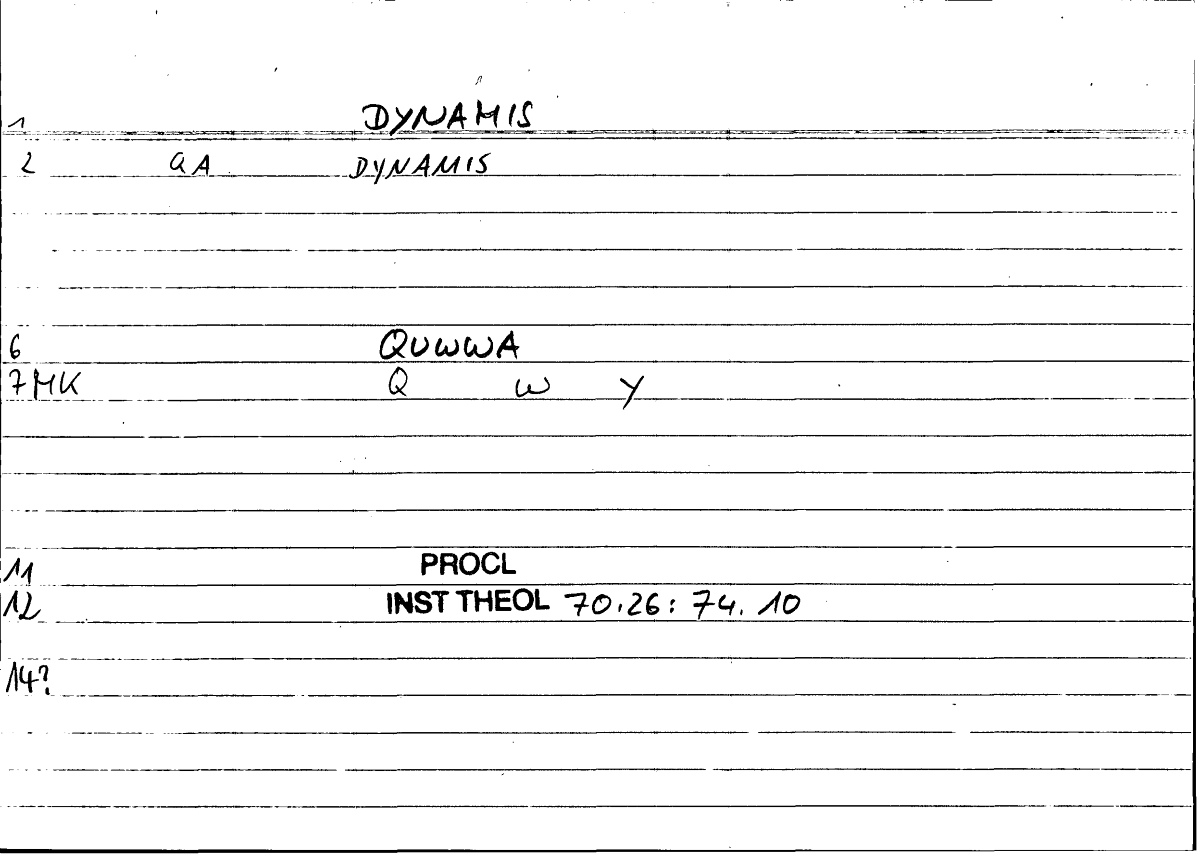 1 DYNAMIS
2 QA DYNAMIS
6 QUWWA
7 MK Q W Y
11 PROCL
12 INST THEOL 70.26: 74. 10
14?